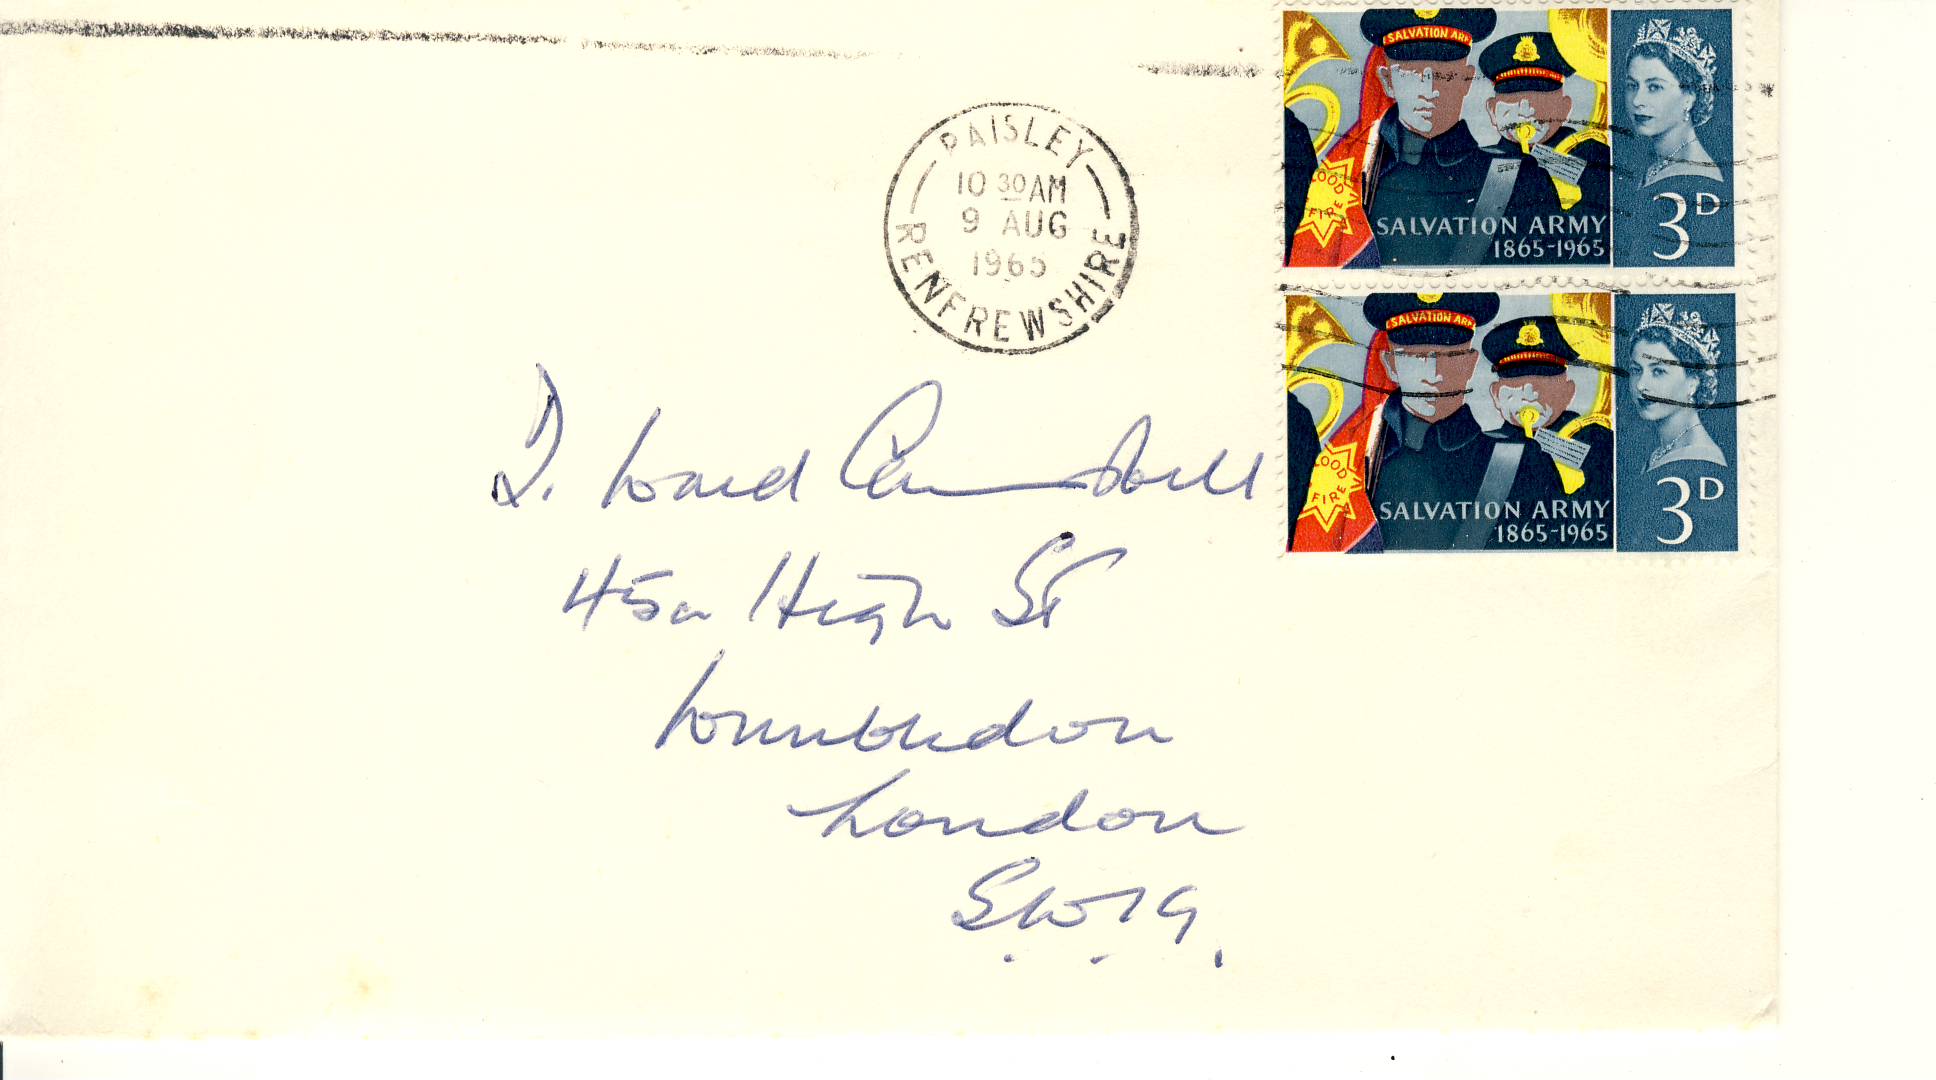 PAISLEY
10 30 AM
9 AUG
1965
RENFREWSHIRE
SALVATION AR
OOD
FIRE
SALVATION ARMY
1865-1965
3D
SALVATION AR
OOD
FIRE
SALVATION ARMY
1865-1965
3D
D. Ward Campbell
45a High St
Wimbledon
London
S.W.19.